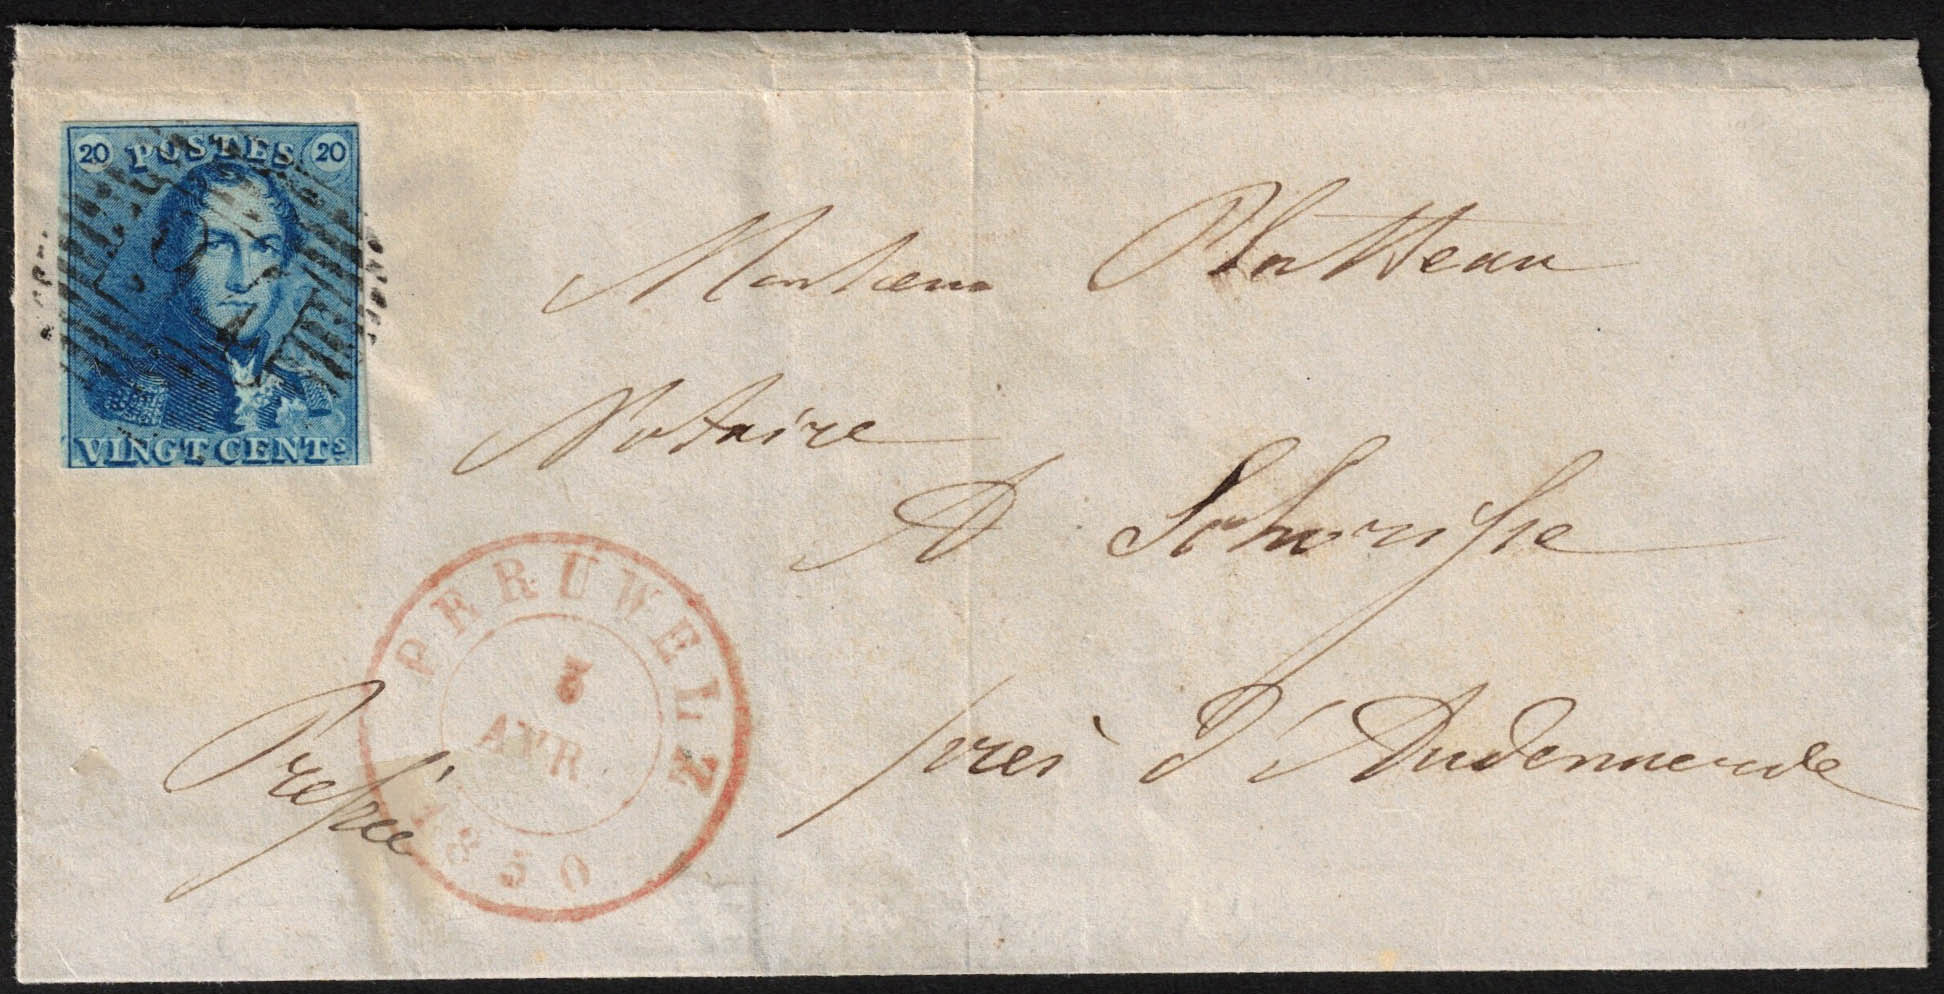 20 POSTES 20
VINGT CENTS
Monsieur Platteau
Notaire
A Schorisse
près d'Audenaerde
PERUWELZ
3
AVR
1850